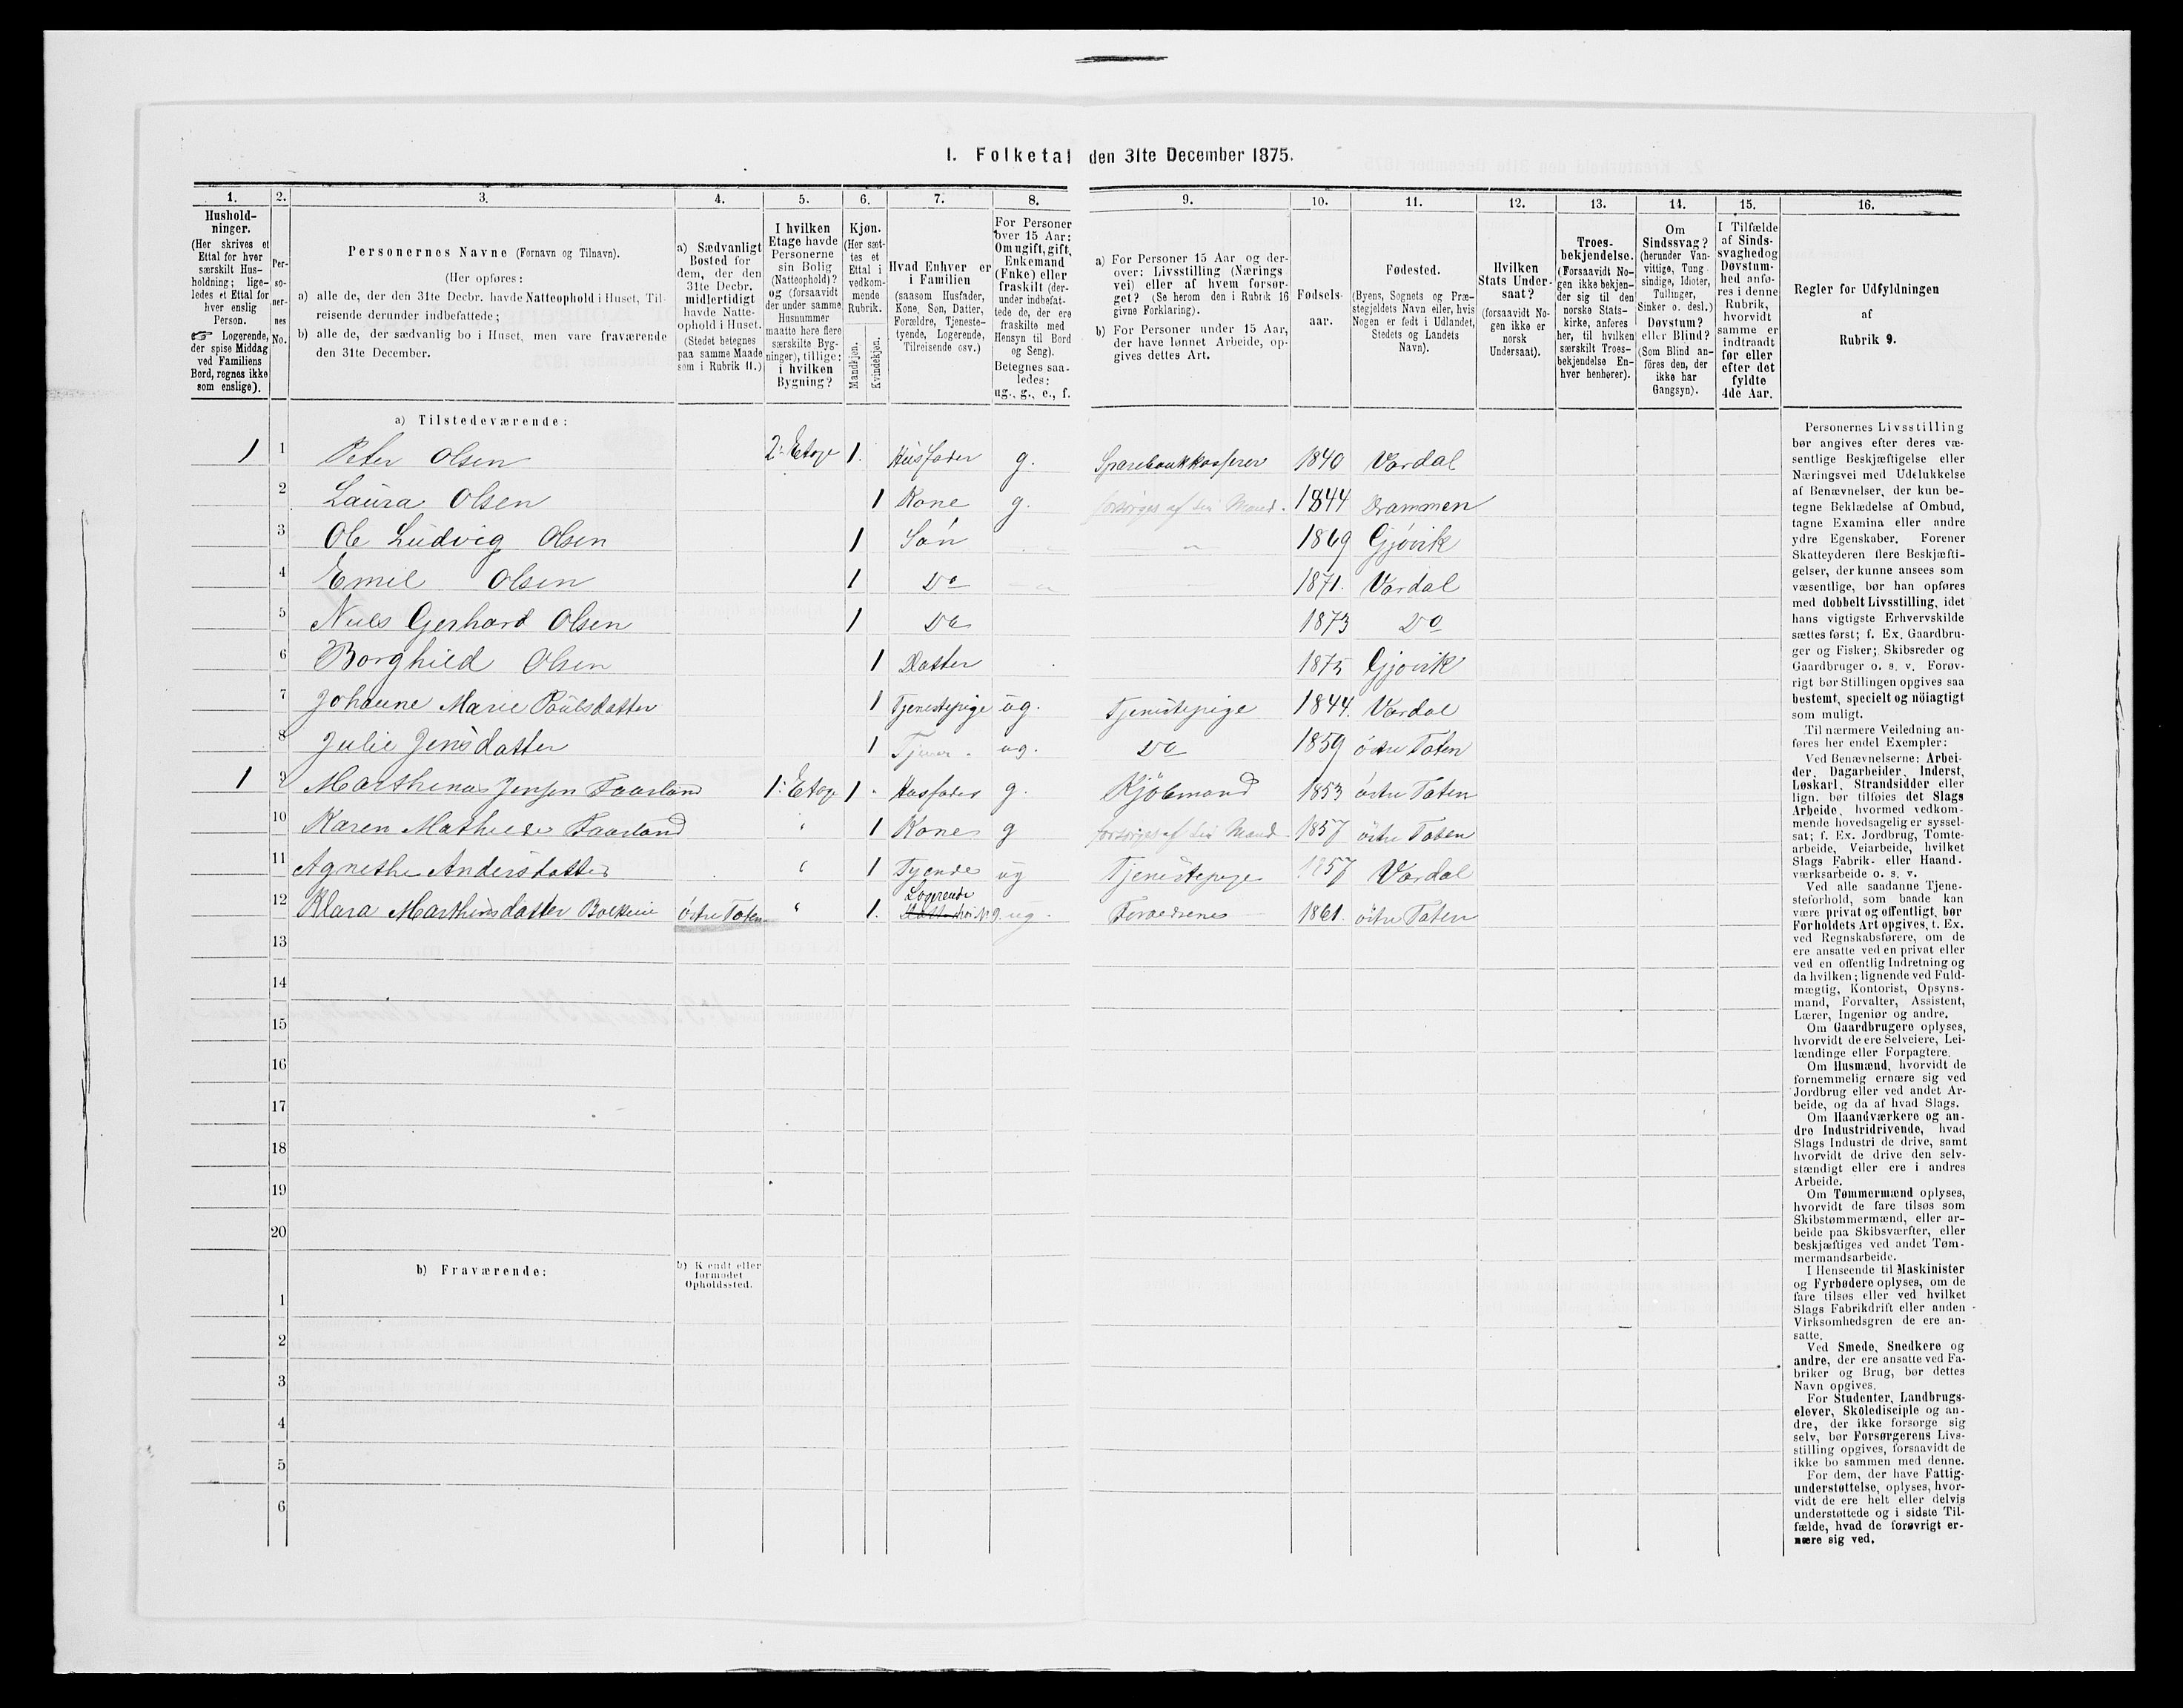 I. Folketal den 31te December 1875.
1. 2. 3. 4. 5. 6. 7. 8. 9. 10. 11. 12. 13. 14. 15. 16.
Hushold-
ninger.
(Her skrives et
Ettal for hver
særskilt Hus-
holdning; lige-
ledes et Ettal for
hver enslig
Person.
☞ Logerende,
der spise Middag
ved Familiens
Bord, regnes ikke
som enslige).
Per-
so-
ner-
nes
No.
Personernes Navne (Fornavn og Tilnavn).
(Her opføres:
a) alle de, der den 31te Decbr. havde Natteophold i Huset, Til-
reisende derunder indbefattede;
b) alle de, der sædvanlig bo i Huset, men vare fraværende
den 31te December.
a) Sædvanligt
Bosted for
dem, der den
31te Decbr.
midlertidigt
havde Natte-
ophold i Huset.
(Stedet betegnes
paa samme Maade
som i Rubrik 11.)
I hvilken
Etage havde
Personerne
sin Bolig
(Natteophold)?
og (forsaavidt
der under samme
Husnummer
maatte høre flere
særskilte Byg-
ninger), tillige:
i hvilken
Bygning?
Kjøn.
(Her sæt-
tes et
Ettal i
vedkom-
mende
Rubrik.
Mandkjøn.
Kvindekjøn.
Hvad Enhver er
i Familien
(saasom Husfader,
Kone, Søn, Datter,
Forældre, Tjeneste-
tyende, Logerende,
Tilreisende osv.)
For Personer
over 15 Aar:
Om ugift, gift,
Enkemand
(Enke) eller
fraskilt (der-
under indbefat-
tede de, der ere
fraskilte med
Hensyn til Bord
og Seng).
Betegnes saa-
ledes:
ug., g., e., f.
a) For Personer 15 Aar og der-
over: Livsstilling (Nærings
vei) eller af hvem forsør-
get? (Se herom den i Rubrik 16
givne Forklaring).
b) For Personer under 15 Aar,
der have lønnet Arbeide, op-
gives dettes Art.
Fødsels-
aar.
Fødested.
(Byens, Sognets og Præ-
stegjeldets Navn eller, hvis
Nogen er født i Udlandet,
Stedets og Landets
Navn).
Hvilken
Stats Under-
saat?
(forsaavidt No-
gen ikke er
norsk
Undersaat).
Troes-
bekjendelse.
(Forsaavidt No-
gen ikke bekjen-
der sig til den
norske Stats-
kirke, anføres
her, til hvilken
særskilt Troes-
bekjendelse En-
hver henhører).
Om
Sindssvag?
(herunder Van-
vittige, Tung
sindige, Idioter,
Tullinger,
Sinker o. desl.)
Døvstum?
eller Blind?
(Som Blind an-
föres den, der
ikke har
Gangsyn).
I Tilfælde
af Sinds-
svaghed og
Døvstum-
hed anfø-
res i denne
Rubrik,
hvorvidt
samme er
indtraadt
før eller
efter det
fyldte
4de Aar.
Regler for Udfyldningen
af
Rubrik 9.
a) Tilstedeværende:
1 1 Peter Olsen 2: Etage 1. Husfader g. Sparebankkasserer 1840 Vardal
2 Laura Olsen 1 Kone g. forsørges af sin Mand. 1844 Drammen
3 Ole Ludvig Olsen 1 Søn 1869 Gjøvik
4 Emil Olsen 1 Do 1871. Vardal
5 Nils Gerhard Olsen 1 Do 1873 Do
6 Borghild Olsen 1 Datter 1875 Gjøvik
7 Johanne Marie Poulsdatter 1 Tjenestepige ug. Tjenestepige 1844. Vardal
8 Julie Jensdatter 1 Tjener. ug. Do 1859 östre Toten
1 9 Marthinus Jensen Faarland 1: Etage 1 Husfader g. Kjöbmand 1853 östre Toten
10 Karen Mathilde Faarland " 1 Kone g forsörges af sin Mand 1857 östre Toten
11 Agnethe Andersdatter " 1 Tyende ug Tjenestepige 1857 Vardal
12 Klara Marthinsdatter östre Toten " 1. Logerende hos No 9. ug. 1861. östre Toten
13
14
15
16
17
18
19
20
b) Fraværende:
b) Kendt eller
formodet
Opholdssted.
1
2
3
4
5
6
Personernes Livsstilling
bør angives efter deres væ-
sentlige Beskjæftigelse eller
Næringsvei med Udelukkelse
af Benævnelser, der kun be-
tegne Beklædelse af Ombud,
tagne Examina eller andre
ydre Egenskaber. Forener
Skatteyderen flere Beskjæfti-
gelser, der kunne ansees som
væsentlige, bør han opføres
med dobbelt Livsstilling, idet
hans vigtigste Erhvervskilde
sættes først; f. Ex. Gaardbru-
ger og Fisker; Skibsreder og
Gaardbruger o. s. v. Forøv-
rigt bør Stillingen opgives saa
bestemt, specielt og nöiagtigt
som muligt.
Til nærmere Veiledning an-
føres her endel Exempler:
Ved Benævnelserne: Arbei-
der, Dagarbeider, Inderst,
Løskarl, Strandsidder eller
lign. bør tilføies det Slags
Arbeide, hvormed vedkom-
mende hovedsagelig er syssel-
sat; f. Ex. Jordbrug, Tomte-
arbeide, Veiarbeide, hvilket
Slags Fabrik- eller Haand-
værksarbeide o. s. v.
Ved alle saadanne Tjene-
steforhold, som baade kan
være privat og offentligt, bør
Forholdets Art opgives, t. Ex.
ved Regnskabsførere, om de
ere ansatte ved en privat eller
ved en offentlig Indretning og
da hvilken; lignende ved Fuld-
mægtig, Kontorist, Opsyns-
mand, Forvalter, Assistent,
Lærer, Ingeniør og andre.
Om Gaardbrugere oplyses,
hvorvidt de ere Selveiere, Lei-
lændinge eller Forpagtere.
Om Husmænd, hvorvidt de
fornemmelig ernære sig ved
Jordbrug eller ved andet Ar-
beide, og da af hvad Slags.
Om Haandværkere og an-
dre Industridrivende, hvad
Slags Industri de drive, samt
hvorvidt de drive den selv-
stændigt eller ere i andres
Arbeide.
Om Tømmermænd oplyses,
hvorvidt de fare tilsøs som
Skibstømmermænd, eller ar-
beide paa Skibsværfter, eller
beskjæftiges ved andet Tøm-
mermandsarbeide.
I Henseende til Maskinister
og Fyrbødere oplyses, om de
fare tilsøs eller ved hvilket
Slags Fabrikdrift eller anden
Virksomhedsgren de ere an-
satte.
Ved Smede, Snedkere og
andre, der ere ansatte ved Fa-
briker og Brug, bør dettes
Navn opgives.
For Studenter, Landbrugs-
elever, Skoledisciple og an-
dre, der ikke forsørge sig
selv, bør Forsørgerens Livs-
stilling opgives, forsaavidt de
ikke bo sammen med denne.
For dem, der have Fattig-
understøttelse, oplyses, hvor-
vidt de ere helt eller delvis
understøttede og i sidste Til-
fælde, hvad de forøvrigt er-
nære sig ved.